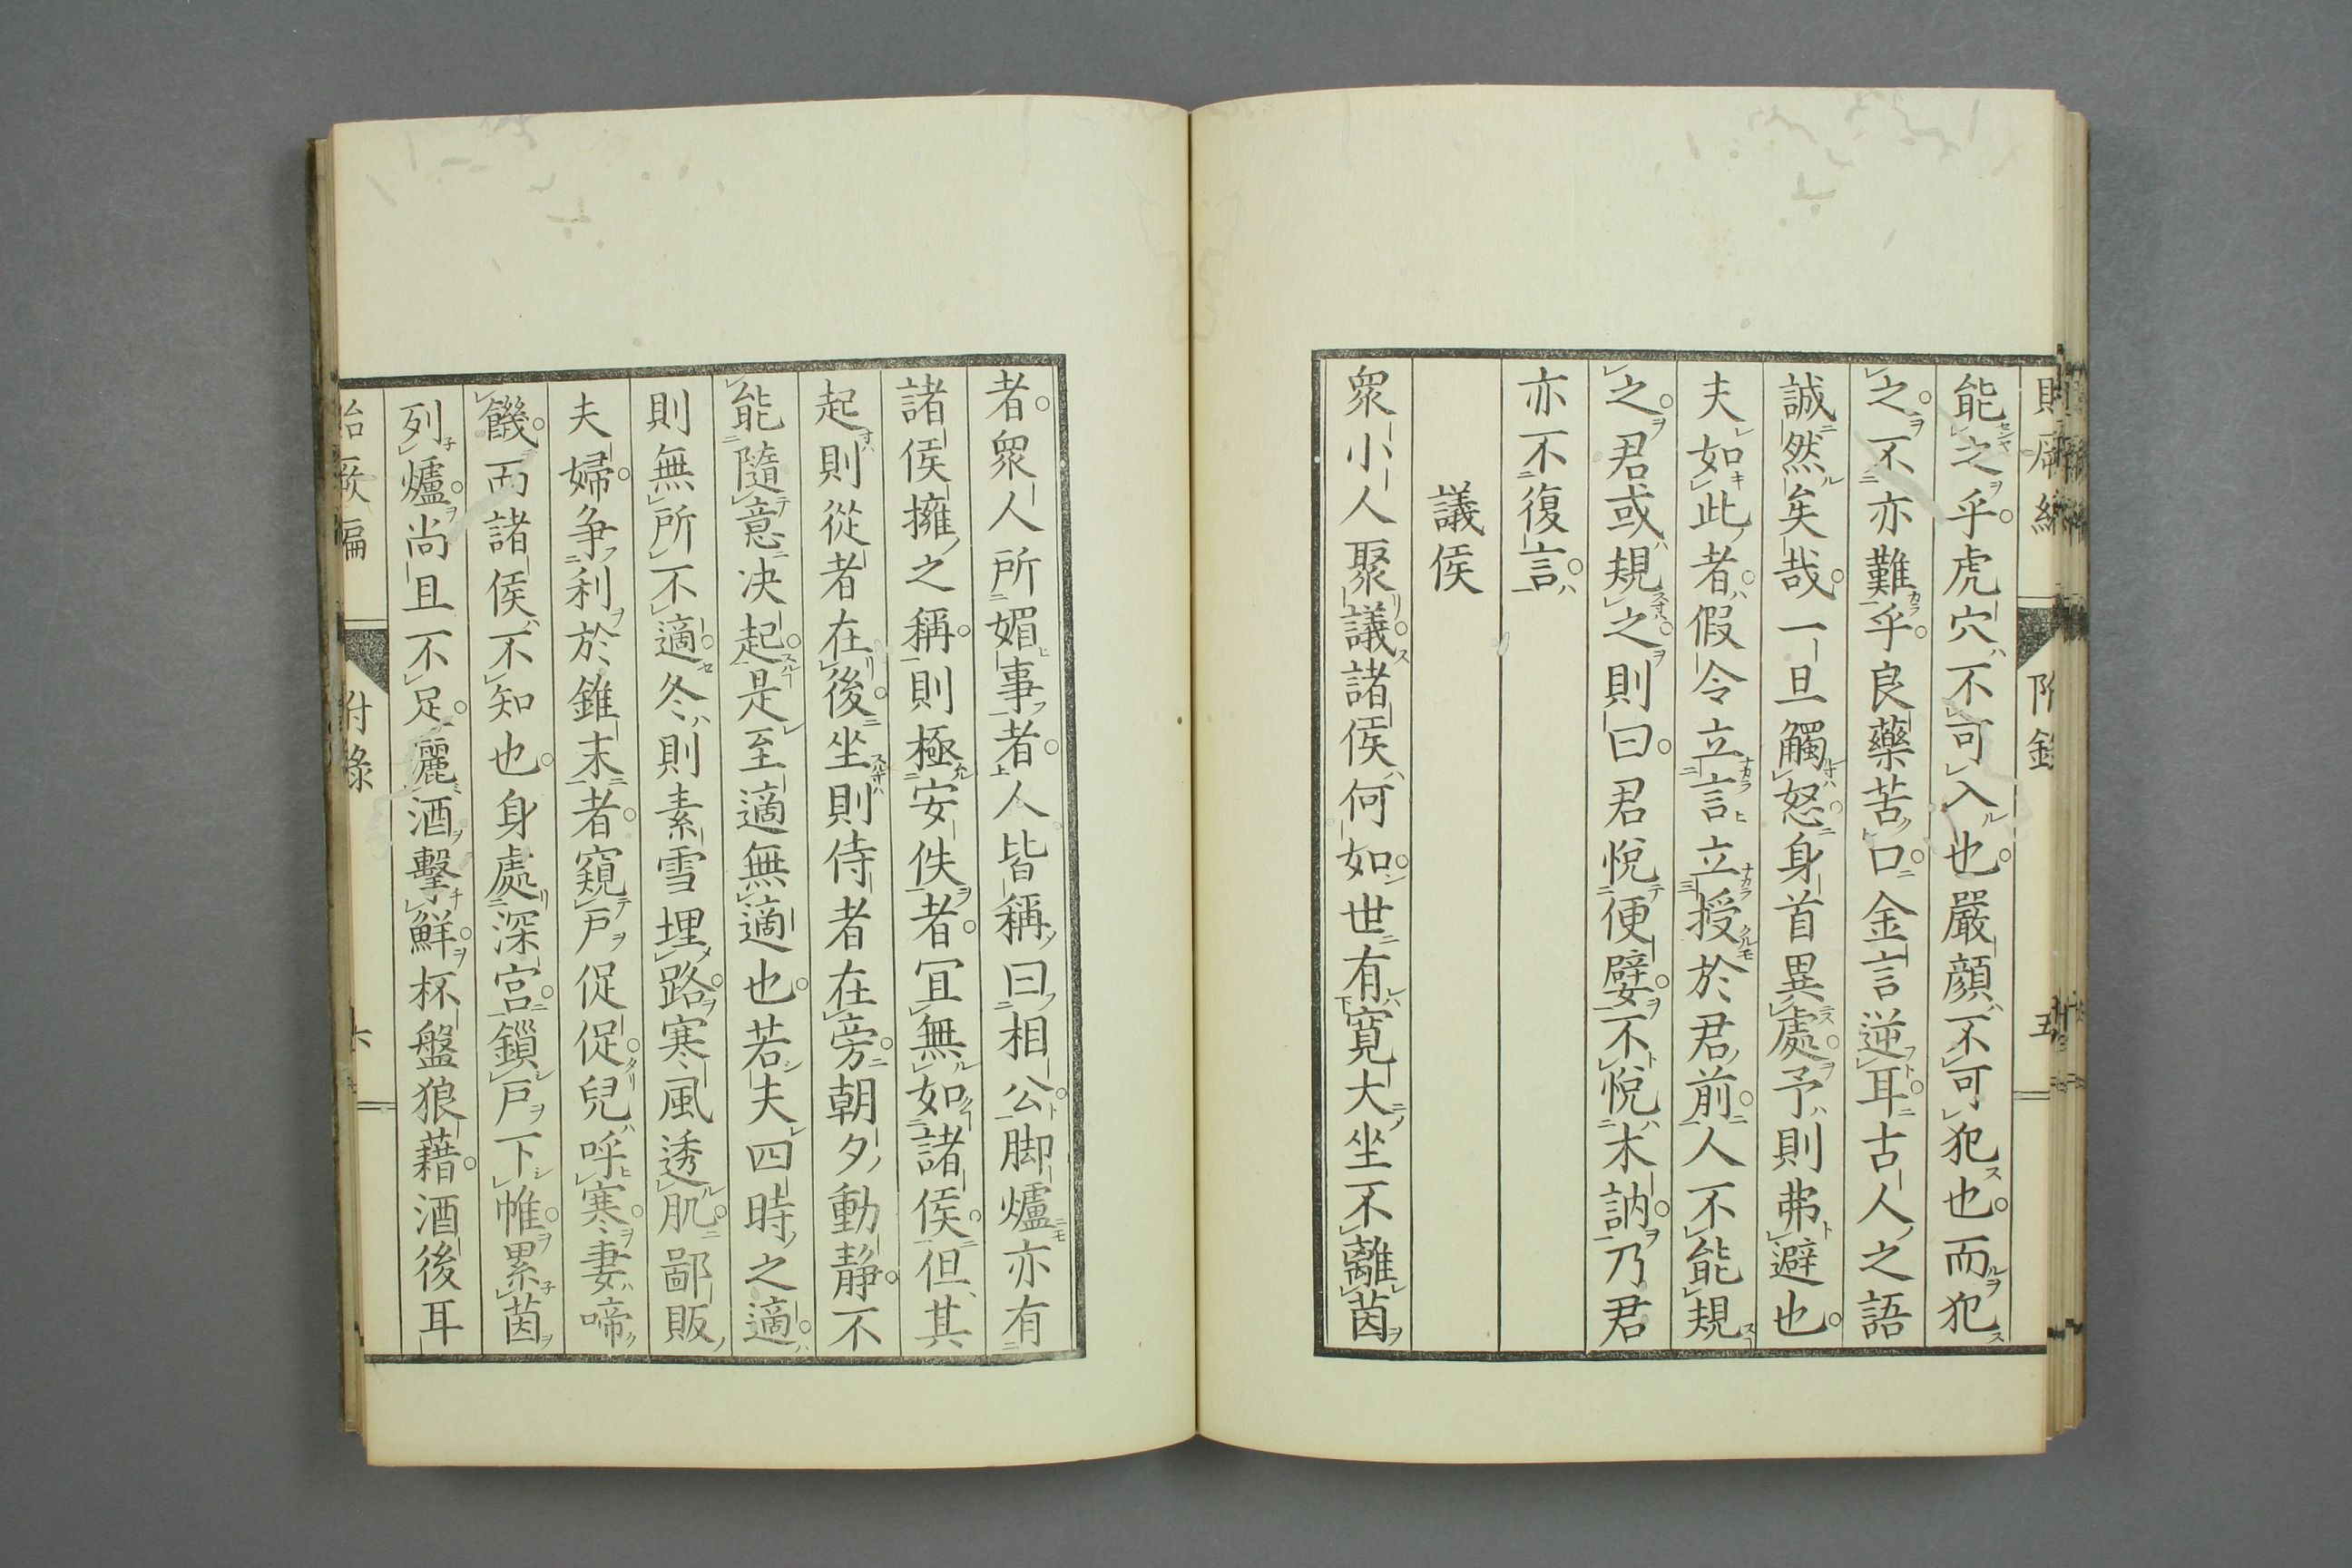 能之乎虎穴不可入也嚴顔不可犯也而犯
之不亦難乎良藥苦口金言逆耳古人之語
誠然矣哉一旦觸怒身首異處予則弗避也
夫如此者假令立言立授於君前人不能規
之君或規之則曰君悅便嬖不悅末訥乃君
亦不復言
議侯
衆小人聚議諸侯何如世有寬大坐不離茵
者衆人所媚事者人皆稱曰相公脚爐亦有
諸侯擁之稱則極安佚者冝無如諸侯但其
起則從者在後坐則侍者在旁朝夕動静不
能隨意决起是至適無適也若夫四時之適
則無所不適冬則素雪埋路寒風透肌鄙販
夫婦争利於錐末者窺戸促促兒呼寒妻啼
饑而諸侯不知也身處深宫鎻戸下帷累茵
列爐尚且不足釃酒擊鮮杯盤狼藉酒後耳